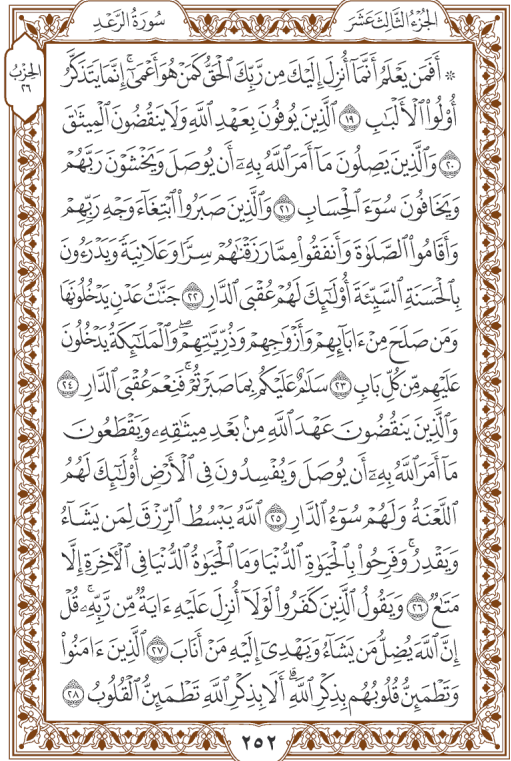 الجُزْءُ الثَّالِثَ عَشَرَ
سُورَةُ الرَّعْدِ
الحِزْبُ
٢٦
۞ أَفَمَن يَعْلَمُ أَنَّمَآ أُنزِلَ إِلَيْكَ مِن رَّبِّكَ ٱلْحَقُّ كَمَنْ هُوَ أَعْمَىٰٓ ۚ إِنَّمَا يَتَذَكَّرُ
أُو۟لُوا۟ ٱلْأَلْبَٰبِ ١٩ ٱلَّذِينَ يُوفُونَ بِعَهْدِ ٱللَّهِ وَلَا يَنقُضُونَ ٱلْمِيثَٰقَ
٢٠ وَٱلَّذِينَ يَصِلُونَ مَآ أَمَرَ ٱللَّهُ بِهِۦٓ أَن يُوصَلَ وَيَخْشَوْنَ رَبَّهُمْ
وَيَخَافُونَ سُوٓءَ ٱلْحِسَابِ ٢١ وَٱلَّذِينَ صَبَرُوا۟ ٱبْتِغَآءَ وَجْهِ رَبِّهِمْ
وَأَقَامُوا۟ ٱلصَّلَوٰةَ وَأَنفَقُوا۟ مِمَّا رَزَقْنَٰهُمْ سِرًّا وَعَلَانِيَةً وَيَدْرَءُونَ
بِٱلْحَسَنَةِ ٱلسَّيِّئَةَ أُو۟لَٰٓئِكَ لَهُمْ عُقْبَى ٱلدَّارِ ٢٢ جَنَّٰتُ عَدْنٍ يَدْخُلُونَهَا
وَمَن صَلَحَ مِنْ ءَابَآئِهِمْ وَأَزْوَٰجِهِمْ وَذُرِّيَّٰتِهِمْ ۖ وَٱلْمَلَٰٓئِكَةُ يَدْخُلُونَ
عَلَيْهِم مِّن كُلِّ بَابٍ ٢٣ سَلَٰمٌ عَلَيْكُم بِمَا صَبَرْتُمْ ۚ فَنِعْمَ عُقْبَى ٱلدَّارِ ٢٤
وَٱلَّذِينَ يَنقُضُونَ عَهْدَ ٱللَّهِ مِنۢ بَعْدِ مِيثَٰقِهِۦ وَيَقْطَعُونَ
مَآ أَمَرَ ٱللَّهُ بِهِۦٓ أَن يُوصَلَ وَيُفْسِدُونَ فِى ٱلْأَرْضِ ۙ أُو۟لَٰٓئِكَ لَهُمُ
ٱللَّعْنَةُ وَلَهُمْ سُوٓءُ ٱلدَّارِ ٢٥ ٱللَّهُ يَبْسُطُ ٱلرِّزْقَ لِمَن يَشَآءُ
وَيَقْدِرُ ۚ وَفَرِحُوا۟ بِٱلْحَيَوٰةِ ٱلدُّنْيَا وَمَا ٱلْحَيَوٰةُ ٱلدُّنْيَا فِى ٱلْءَاخِرَةِ إِلَّا
مَتَٰعٌ ٢٦ وَيَقُولُ ٱلَّذِينَ كَفَرُوا۟ لَوْلَآ أُنزِلَ عَلَيْهِ ءَايَةٌ مِّن رَّبِّهِۦ ۗ قُلْ
إِنَّ ٱللَّهَ يُضِلُّ مَن يَشَآءُ وَيَهْدِىٓ إِلَيْهِ مَنْ أَنَابَ ٢٧ ٱلَّذِينَ ءَامَنُوا۟
وَتَطْمَئِنُّ قُلُوبُهُم بِذِكْرِ ٱللَّهِ ۗ أَلَا بِذِكْرِ ٱللَّهِ تَطْمَئِنُّ ٱلْقُلُوبُ ٢٨
٢٥٢